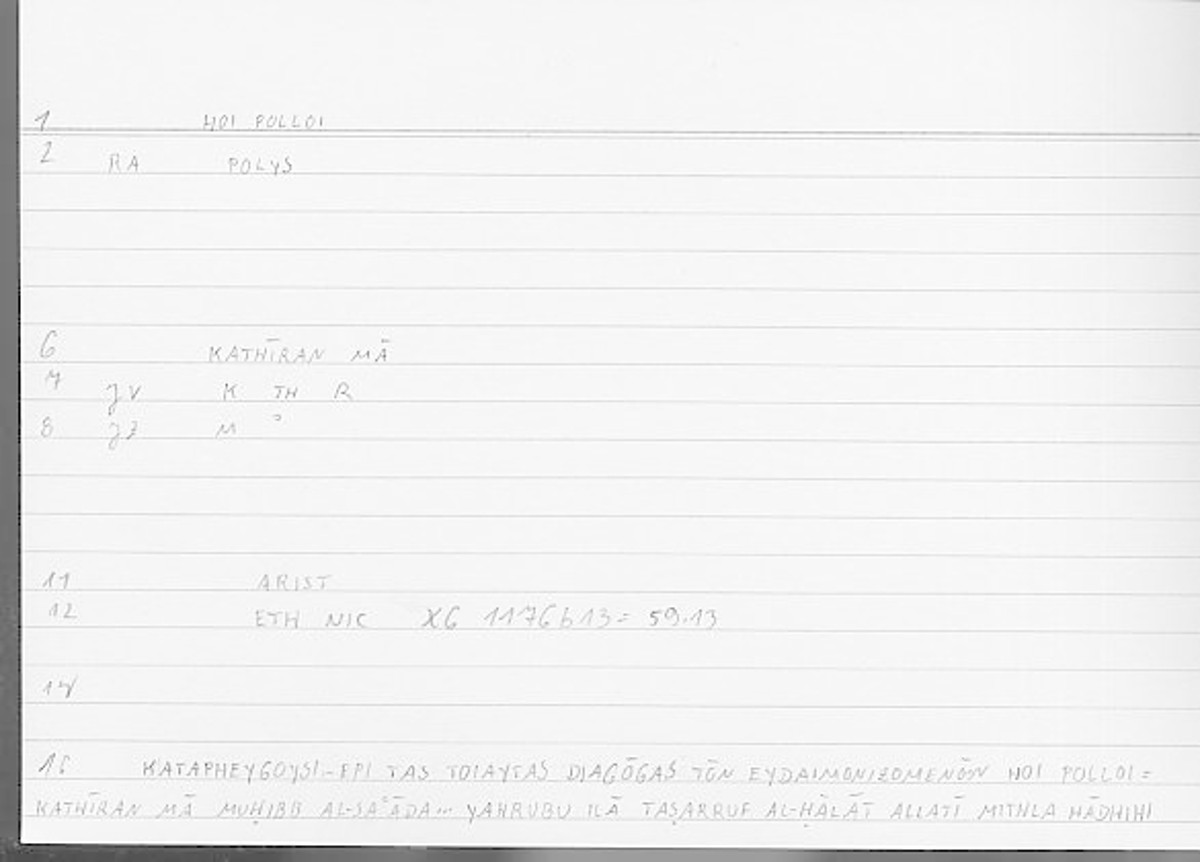 1 HOI POLLOI
2 RA POLYS
6 KATHĪRAN MĀ
7 JV K TH R
8 JZ M ʾ
11 ARIST
12 ETH NIC X6 1176b13 = 59.13
14
16 KATAPHEYGOYSI – EPI TAS TOIAYTAS DIAGŌGAS TŌN EYDAIMONIZOMENŌN HOI POLLOI =
KATHĪRAN MĀ MUḤIBB AL-SAʿĀDA ... YAHRUBU ILĀ TAṢARRUF AL-ḤĀLĀT ALLATĪ MITHLA HĀDHIHI